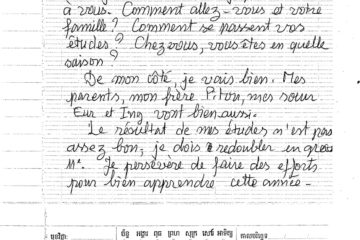 à vous. Comment allez-vous et votre
famille? Comment se passent vos
études? Chez vous, vous êtes en quelle
saison?
De mon côté, je vais bien. Mes
parents, mon frère Pitou, mes sœur
Eur et Ing vont bien aussi.
Le résultat de mes études n'est pas
assez bon, je dois redoubler en
Je persévère de faire des efforts
pour bien apprendre cette année-
ច័ន្ទ អង្គារ ពុធ ព្រហ សុក្រ សៅរ៍ អាទិត្យ